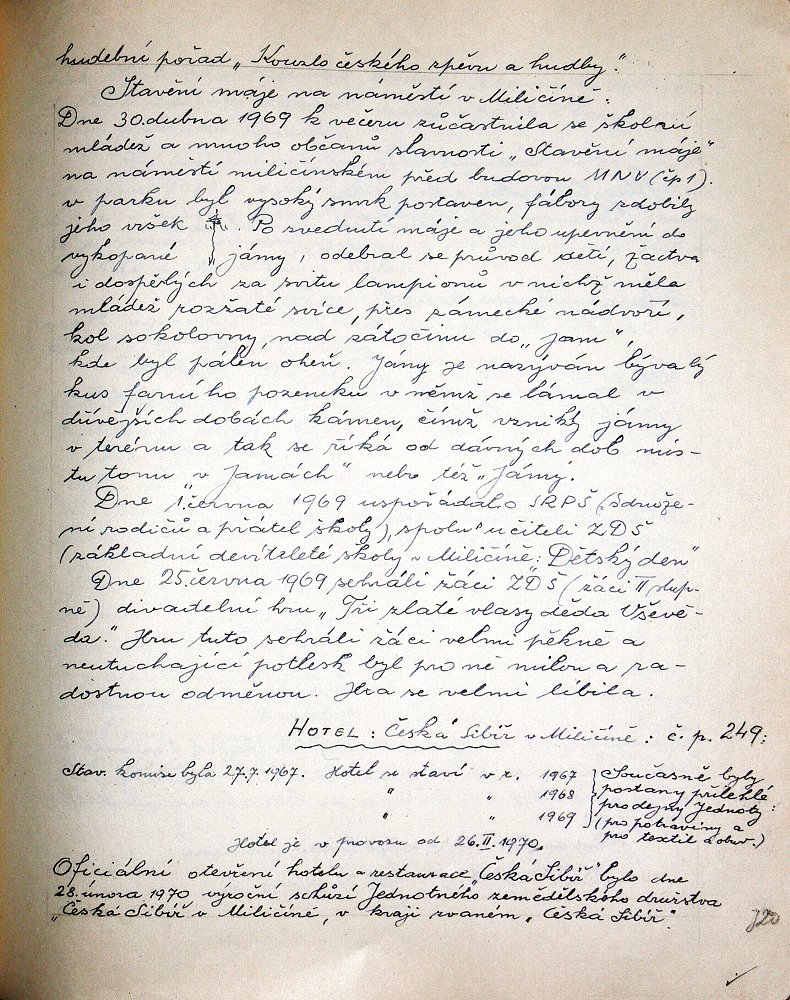 hudební pořad „Kouzlo českého zpěvu a hudby“.
Stavění máje na náměstí v Miličíně:
Dne 30. dubna 1969 k večeru zúčastnila se školní
mládež a mnoho občanů slavnosti „Stavění máje“
na náměstí miličínském před budovou MNV (čp 1).
v parku byl vysoký smrk postaven, fábory zdobily
jeho vršek . Po zvednutí máje a jeho upevnění do
vykopané jámy, odebral se průvod dětí, žactva
i dospělých za svitu lampionů v nichž měla
mládež rozžaté svíce, přes zámecké nádvoří,
kol sokolovny, nad zátočinu do „jam“,
kde byl pálen oheň. Jámy je nazýván bývalý
kus farního pozemku v němž se lámal v
dřívějších dobách kámen, čímž vznikly jámy
v terénu a tak se říká od dávných dob mís-
tu tomu „v Jamách“ nebo též „Jámy“.
Dne 1. června 1969 uspořádalo SRPŠ (Sdruže-
ní rodičů a přátel školy), spolu s učiteli ZDŠ
(základní devítileté školy v Miličíně: „Dětský den“
Dne 25. června 1969 sehráli žáci ZDŠ (žáci II stup-
ně) divadelní hru „Tři zlaté vlasy děda Vševě-
da.“ Hru tuto sehráli žáci velmi pěkně a
neutuchající potlesk byl pro ně milou a ra-
dostnou odměnou. Hra se velmi líbila.
HOTEL: Česká Sibiř v Miličíně: č. p. 249:
Stav. komise byla 27.7.1967. Hotel se staví v r. 1967 } Současně byly
" " 1968 } postany přilehlé
" " 1969 } prodejny Jednoty:
(pro potraviny a
pro textil a obuv.)
Hotel je v provozu od 26. II. 1970.
Oficiální otevření hotelu a restaurace „Česká Sibiř“ bylo dne
28. února 1970 výroční schůzí Jednotného zemědělského družstva
„Česká Sibiř v Miličíně, v kraji zvaném „Česká Sibiř“.